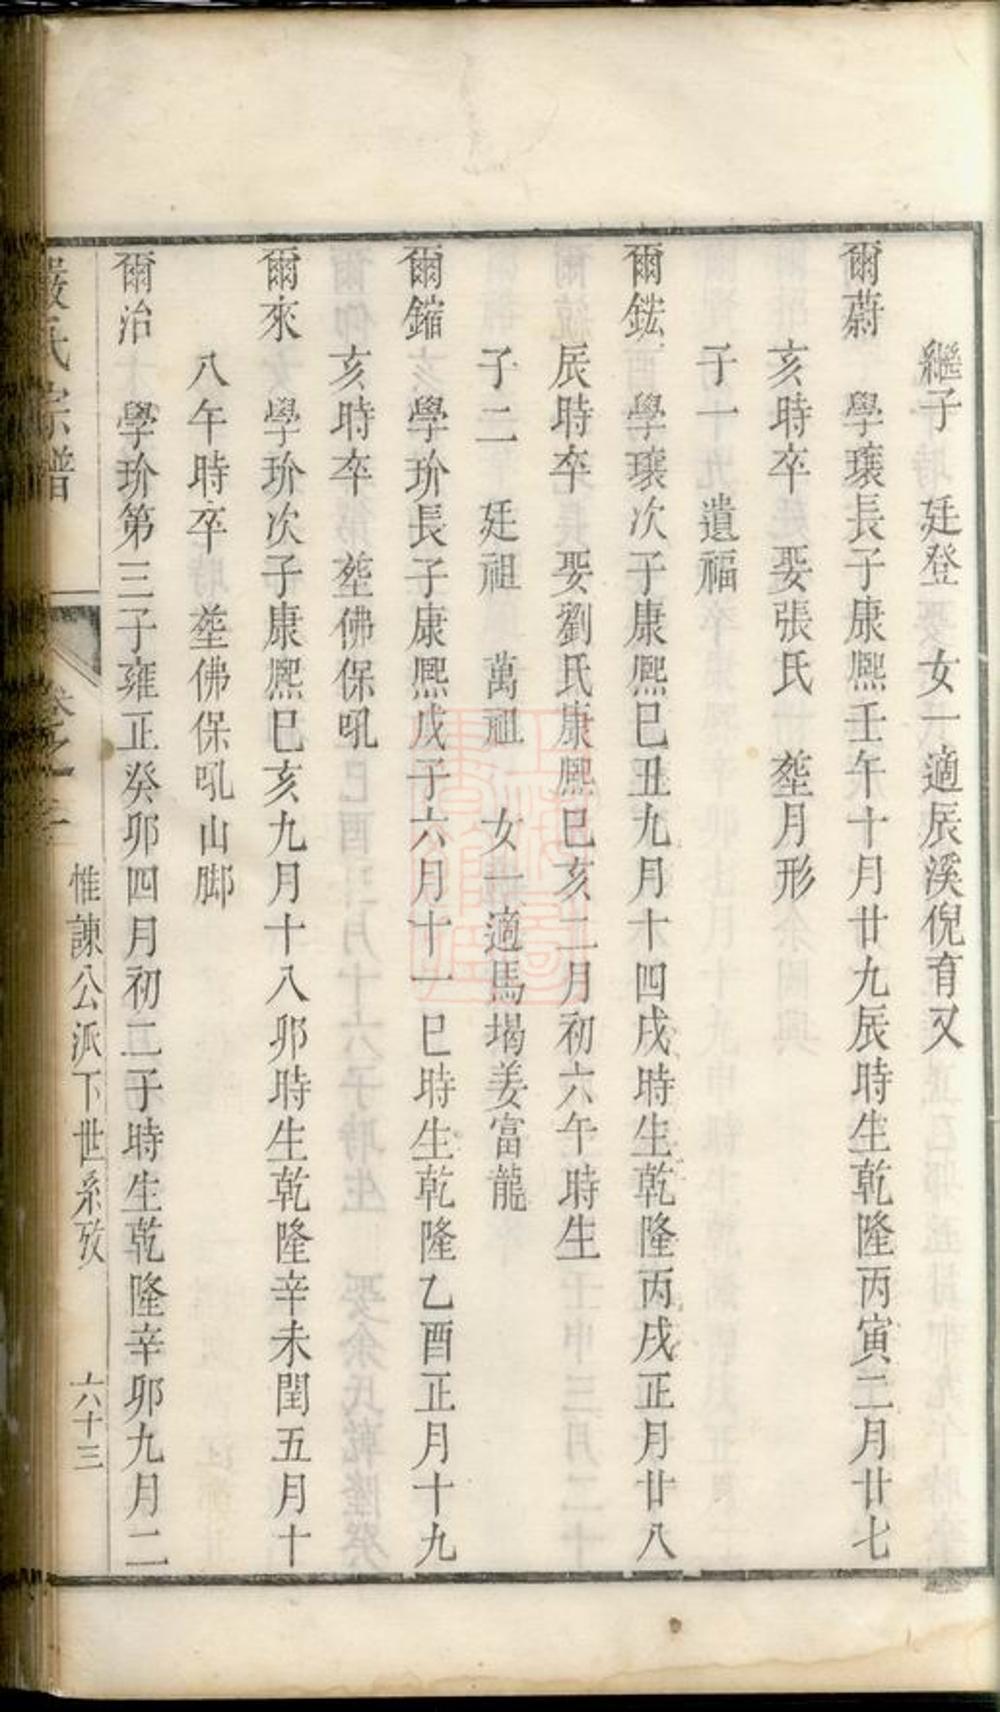 繼子 廷登 女一適辰溪倪有又
爾蔚 學瓌長子康熙壬午十月廿九辰時生乾隆丙寅二月廿七
亥時卒 娶張氏 塟月形
子一 遺福
爾鍅 學瓌次子康熙巳丑九月十四戌時生乾隆丙戌正月廿八
辰時卒 娶劉氏康熙巳亥二月初六午時生
子二 廷祖 萬祖 女一適馬堨姜富龍
爾鏥 學玠長子康熙戊子六月十一巳時生乾隆乙酉正月十九
亥時卒 塟佛保吼
爾來 學玠次子康熙巳亥九月十八卯時生乾隆辛未閏五月十
八午時卒 塟佛保吼山脚
爾治 學玠第三子雍正癸卯四月初二子時生乾隆辛卯九月二
嚴氏宗譜 卷之 惟諫公派下世系攷 六十三